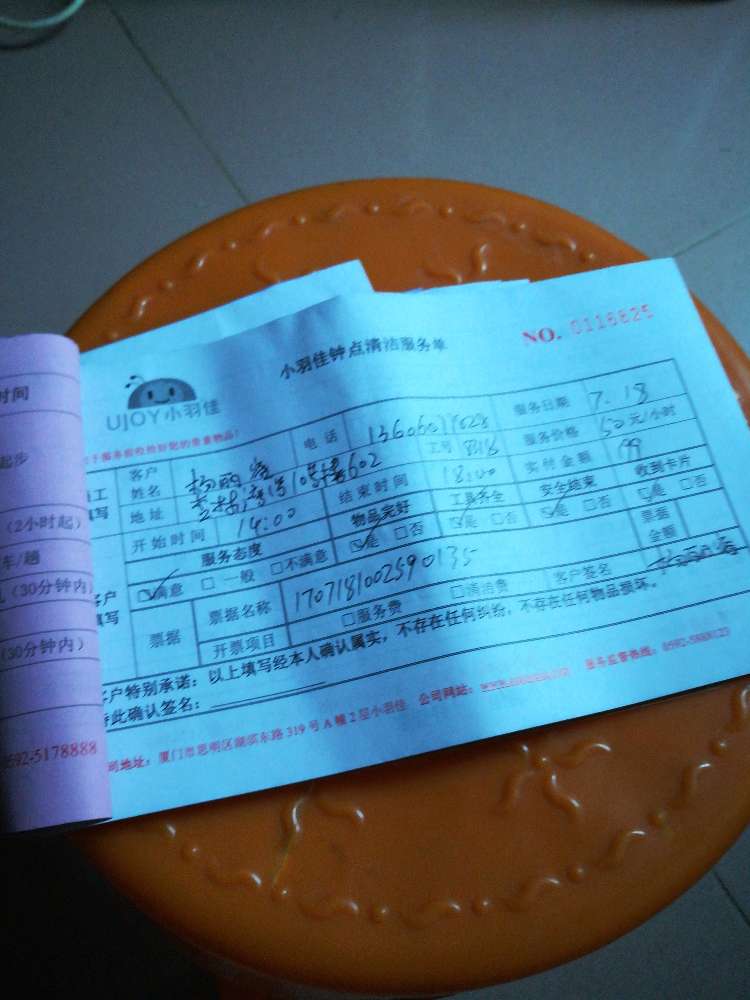 小羽佳钟点清洁服务单
NO. 0116825
UJOY小羽佳
客户姓名 电话 服务日期 7.18
地址 工号 服务价格 50元/小时
开始时间 14:00 结束时间 18:00 实付金额 199
服务态度 物品完好 工具齐全 安全结束 收到卡片
满意 一般 不满意 是 否 是 否 是 否 是 否
票据 票据名称 1707181002590135 票据金额
开票项目 服务费 清洁费 客户签名
客户特别承诺：以上填写经本人确认属实，不存在任何纠纷，不存在任何物品损坏。
特此确认签名：
司地址：厦门市思明区湖滨东路319号A幢2层小羽佳 公司网站： 服务监督热线：0592-5888123
时间
起步
（2小时起）
车/趟
（30分钟内）
（30分钟内）
0592-5178888